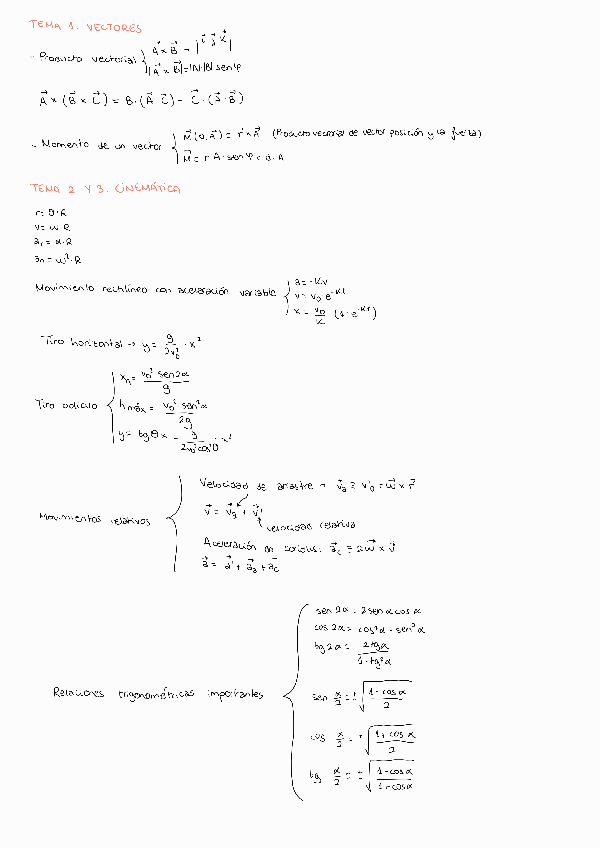 TEMA 1. VECTORES
- Producto vectorial { A⃗ × B⃗ = | i⃗ j⃗ k⃗ |
|A⃗ × B⃗| = |A|·|B| sen φ
A⃗ × (B⃗ × C⃗) = B·(A⃗ C⃗) - C⃗·(A⃗·B⃗)
- Momento de un vector { M⃗(o,a⃗) = r⃗ × A⃗ (Producto vectorial de vector posición y la fuerza)
M⃗ = r A·sen φ = d·A
TEMA 2 Y 3. CINEMÁTICA
r = θ·R
v = ω R
a_t = α·R
a_n = ω²·R
Movimiento rectilíneo con aceleración variable { a = -Kv
v = v₀ e^-Kt
x = v₀/K (1-e^-Kt)
Tiro horizontal → y = g/2v₀² · x²
Tiro oblicuo { x_n = v₀² sen2α/g
h máx = v₀² sen²α/2g
y = tgθ x - g/2v₀²cos²θ x²
Movimientos relativos { Velocidad de arrastre = v⃗a = v'₀ = ω⃗ × r⃗
v⃗ = v⃗a + v⃗'
velocidad relativa
Aceleración de coriolis: a⃗c = 2ω⃗ × v⃗
a⃗ = a⃗' + a⃗a + a⃗c
Relaciones trigonométricas importantes { sen 2α = 2 sen α cos α
cos 2α = cos²α - sen²α
tg 2α = 2tgα/1-tg²α
sen α/2 = ±√(1-cos α/2)
cos α/2 = ±√(1+cos α/2)
tg α/2 = ±√(1-cos α/1-cos α)